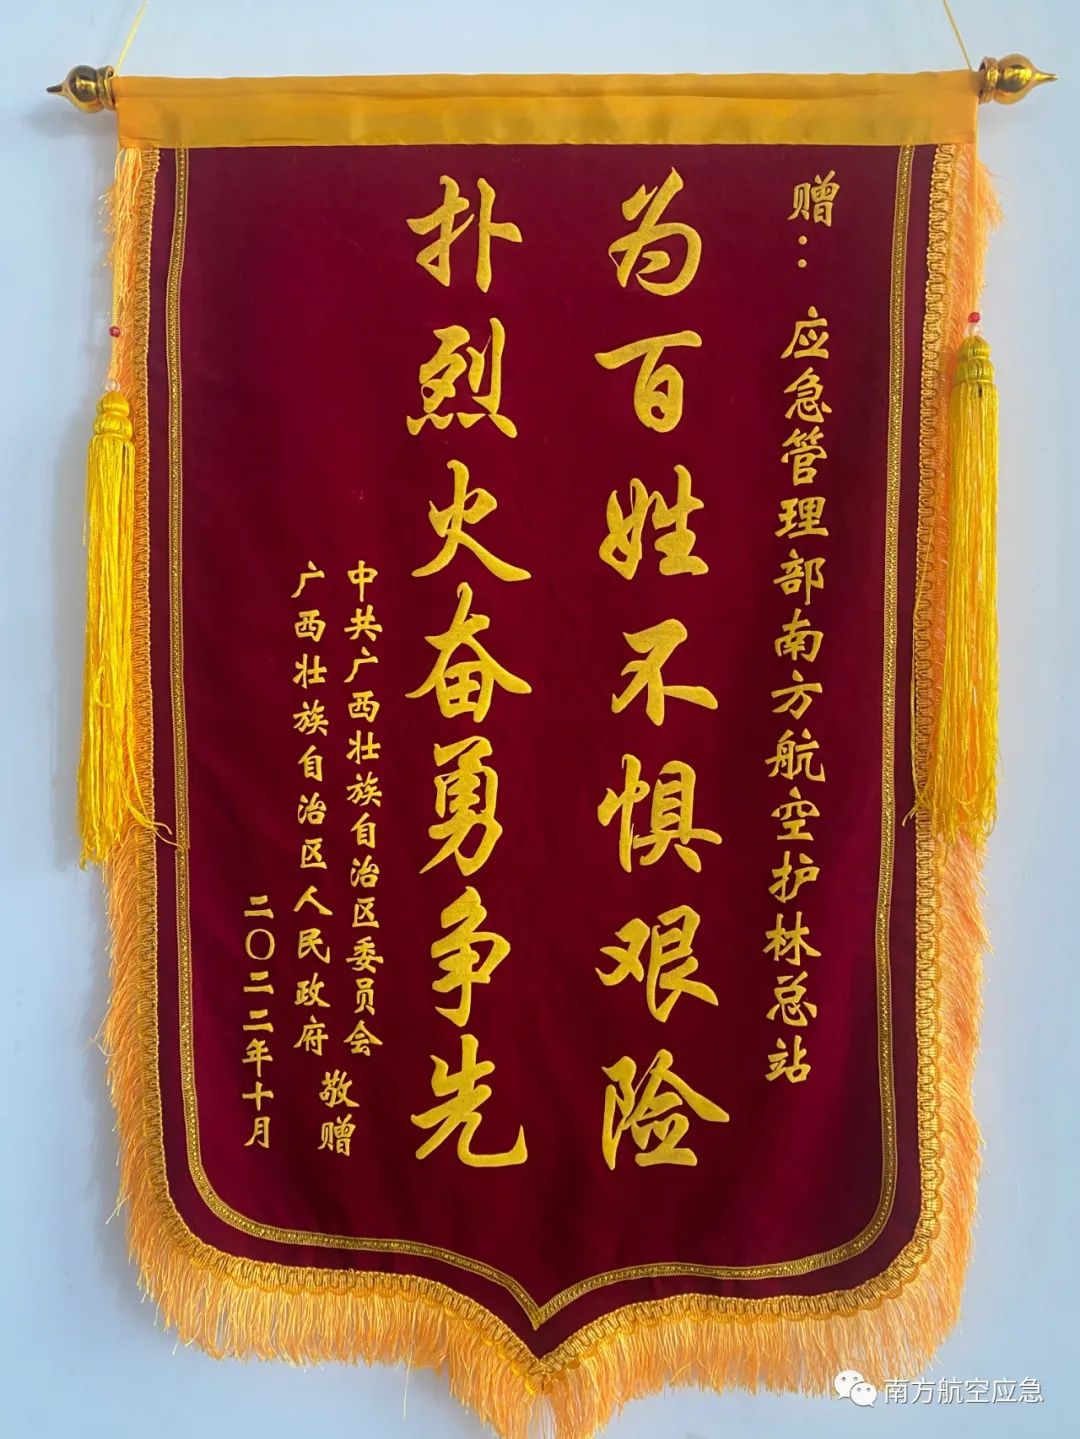 赠：应急管理部南方航空护林总站
为百姓不惧艰险
扑烈火奋勇争先
中共广西壮族自治区委员会
广西壮族自治区人民政府
敬赠
二〇二二年十月
南方航空应急